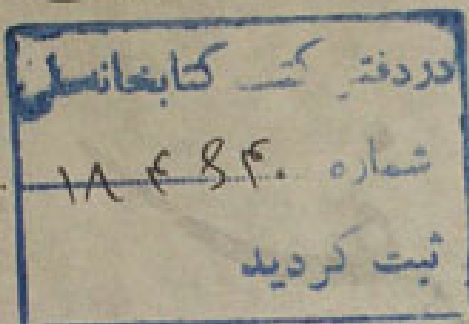 در دفتر کتب کتابخانه ملی
شماره
ثبت کردید